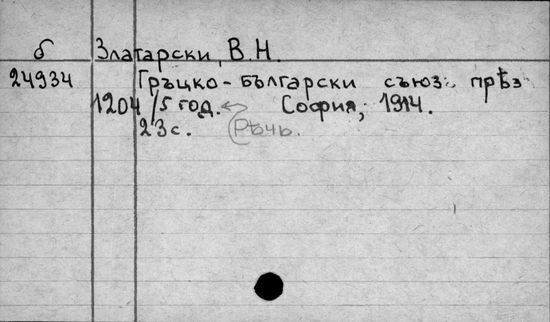 б Златарски, В.Н.
24934 Гръцко-български съюз прѣз
1204/5 год. София, 1914.
23 с. (Рѣчь.